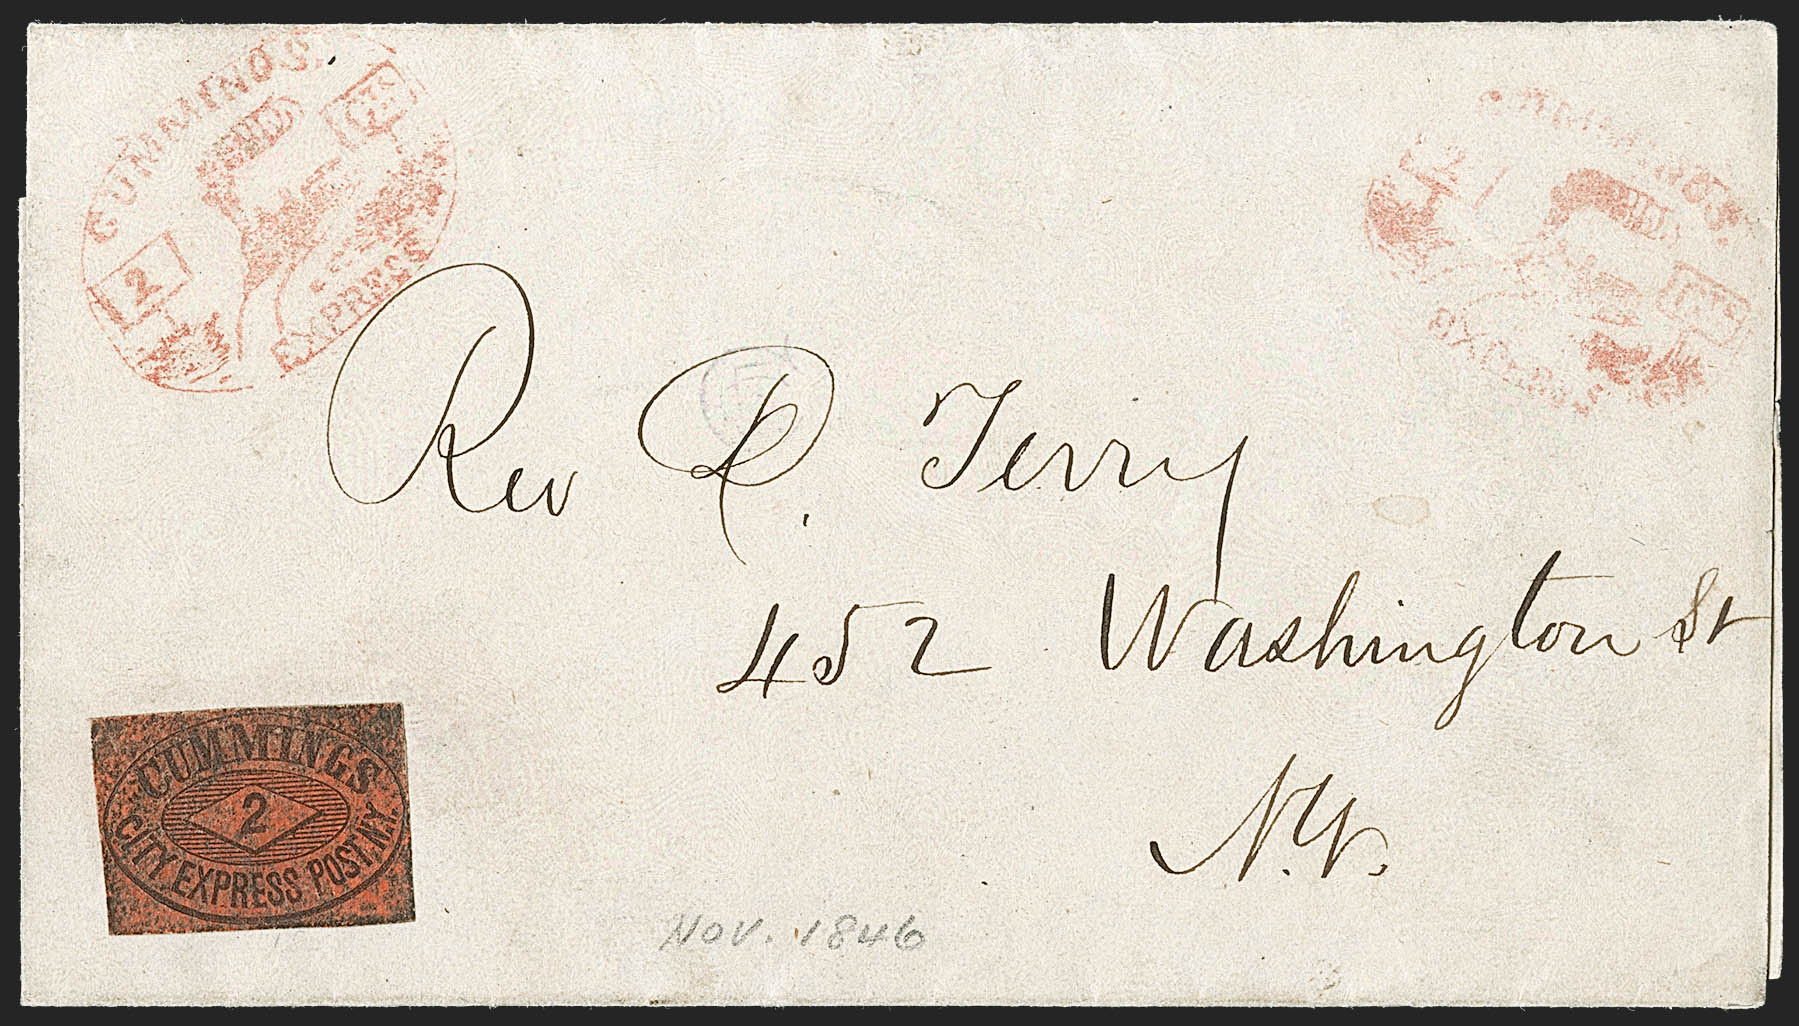 CUMMINGS
2
CTS
EXPRESS
CUMMINGS
2
CTS
EXPRESS
Rev D. Terry
452 Washington St
N.Y.
CUMMINGS
2
CITY EXPRESS POST N.Y.
NOV. 1846